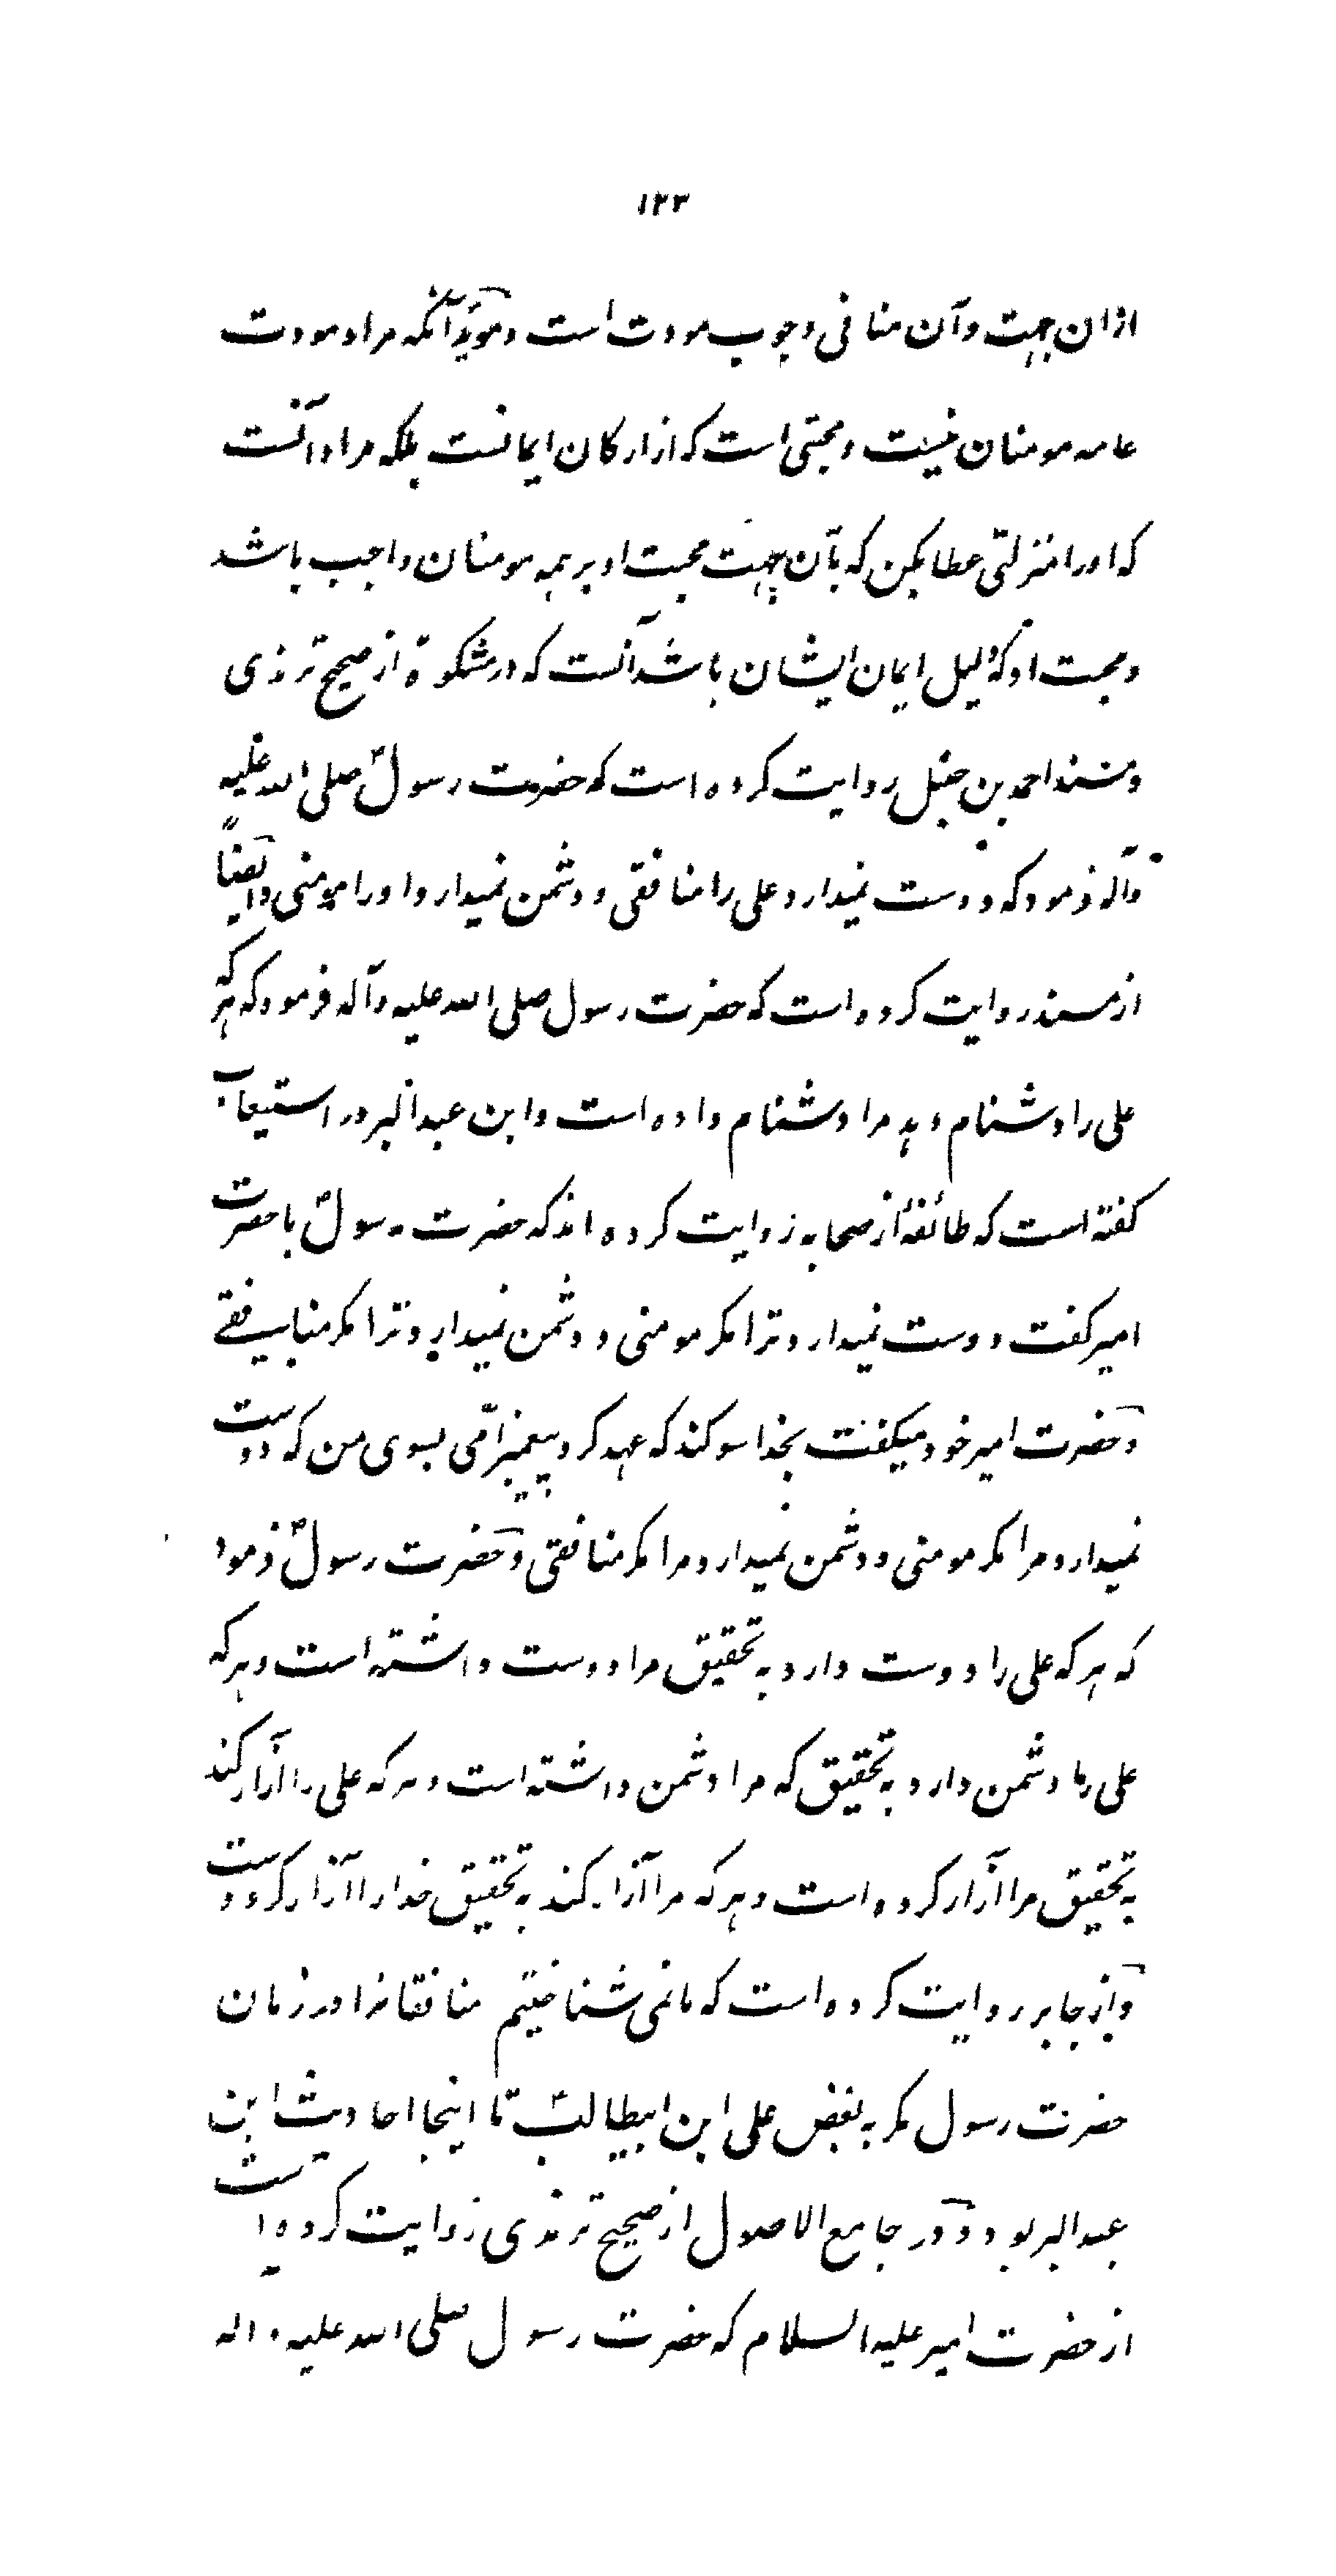 ۱۲۳
ازان جهت وآن منافی وجوب مودت است و مؤید آنکه مراد مودت
عامه مومنان نیست و محبتی است که از ارکان ایمانست بلکه مراد آنست
که اورا منزلتی عطا بکن که بآن جهت محبت او بر همه مومنان واجب باشد
و محبت او که دلیل ایمان ایشان باشد آنست که در مشکوة از صحیح ترمذی
و مسند احمد بن حنبل روایت کرده است که حضرت رسولؐ صلی الله علیه
وآله فرمود که دوست نمیدارد علی را منافقی و دشمن نمیدارد اورا مومنی وایضاً
از مسند روایت کرده است که حضرت رسول صلی الله علیه وآله فرمود که هرکه
علی را دشنام دهد مرا دشنام داده است وابن عبدالبر در استیعاب
گفته است که طائفۀ از صحابه روایت کرده اند که حضرت رسولؐ با حضرت
امیر گفت دوست نمیدارد ترا مکر مومنی و دشمن نمیدارد ترا مکر منافقے
و حضرت امیر خود میگفت بخدا سوکند که عهد کرد پیغمبر امّی بسوی من که دوست
نمیدارد مرا مکر مومنی و دشمن نمیدارد مرا مکر منافقی و حضرت رسولؐ فرمود
که هرکه علی را دوست دارد به تحقیق مرا دوست داشته است و هرکه
علی را دشمن دارد به تحقیق که مرا دشمن داشته است و هرکه علی را آزار کند
به تحقیق مرا آزار کرده است و هرکه مرا آزار کند به تحقیق خدا را آزار کرده است
و از جابر روایت کرده است که ما نمی شناختیم منافقانرا در زمان
حضرت رسول مکر به بغض علی ابن ابیطالبؑ تا اینجا احادیث ابن
عبدالبر بود و در جامع الاصول از صحیح ترمذی روایت کرده است
از حضرت امیر علیه السلام که حضرت رسول صلی الله علیه واله